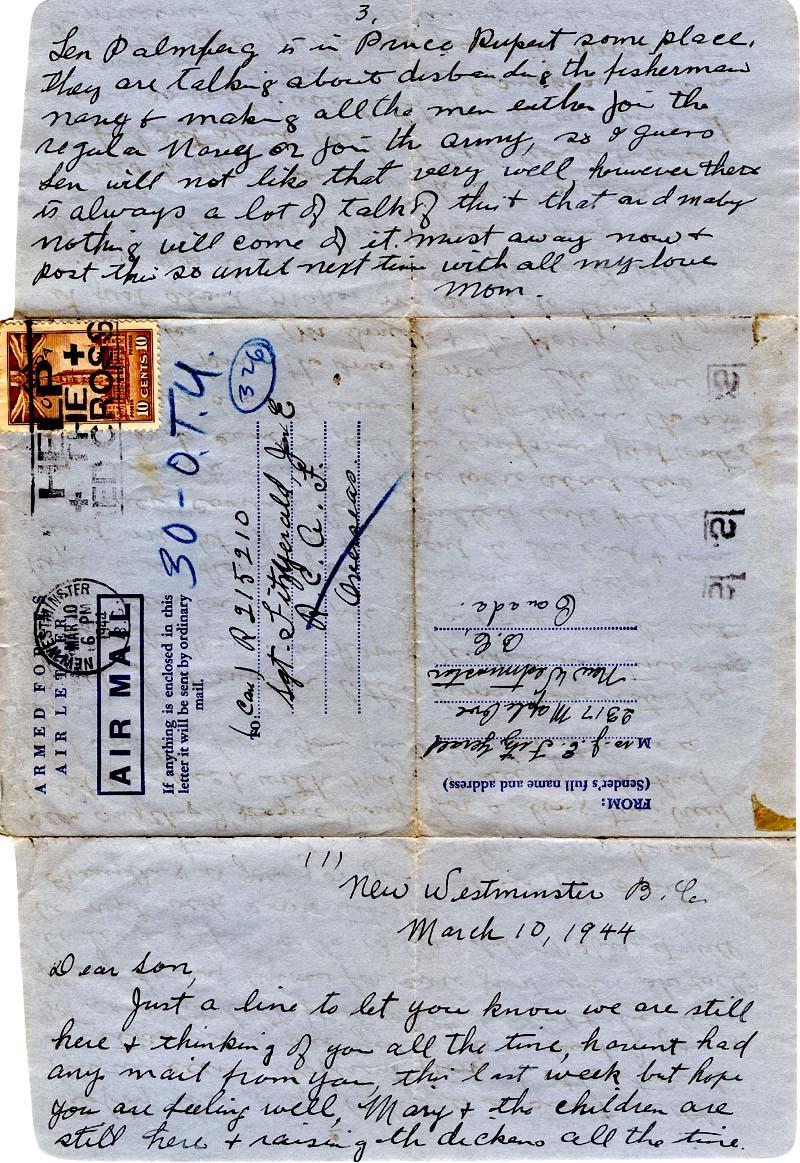 3.
Len Palmberg is in Prince Rupert some place.
they are talking about disbanding the fisherman
navey & making all the men either join the
regular Navey or join th army, so I guess
Len will not like that very well however there
is always a lot of talk of this & that and maby
nothing will come of it. must away now &
post this so until next time with all my love
Mom.
10 CENTS 10
HELP
THE +
+ RED CROSS
ARMED FORCES
AIR LETTER
NEW WESTMINSTER
MAR 10
6 PM
1944
B.C.
AIR MAIL
If anything is enclosed in this
letter it will be sent by ordinary
mail.
30-O.T.U.
326
TO: (Can) R 215210
Sgt. Fitzgerald J.E
R. C. A. F.
Overseas.
FROM:
(Sender's full name and address)
Mrs. J. E. Fitzgerald
2317 Maple Ave
New Westminster
B.C.
Canada.
(1)
New Westminster B.C.
March 10, 1944
Dear Son,
Just a line to let you know we are still
here & thinking of you all the time, havent had
any mail from you, this last week but hope
you are feeling well, Mary & the children are
still here & raising th dickens all the time.